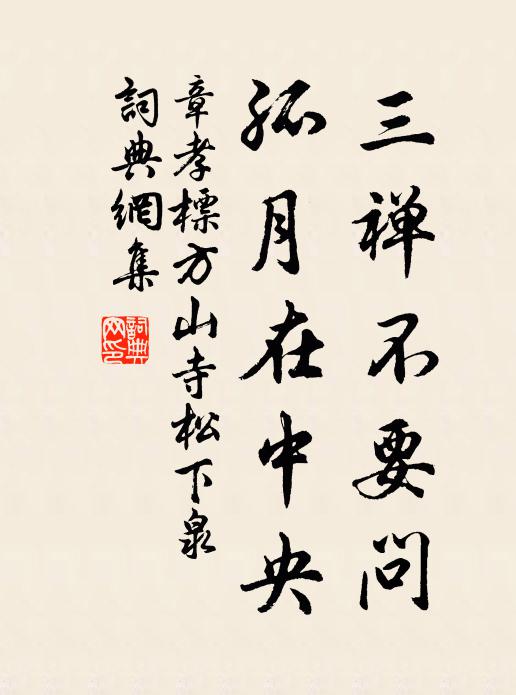 三禅不要问
孤月在中央
章孝標方山寺松下泉
詞典網集
詞典
网印